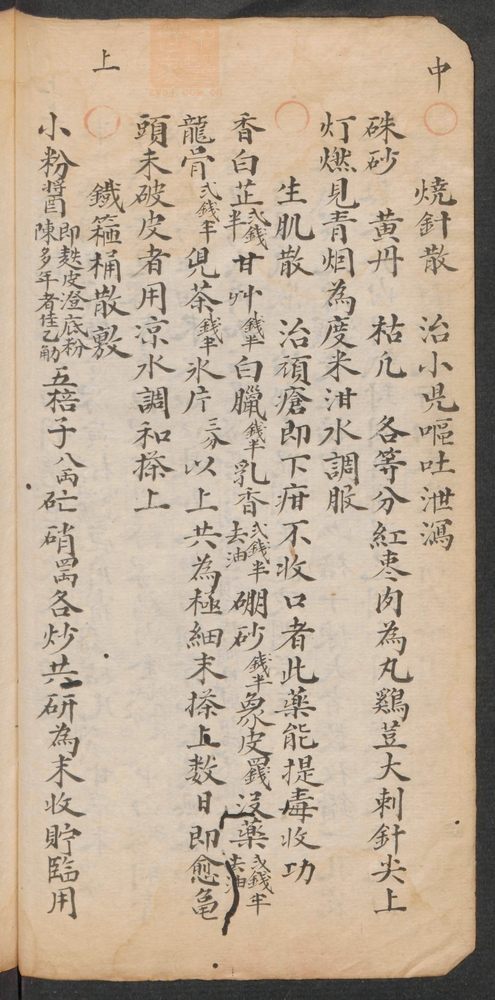 中
燒針散 治小児嘔吐泄瀉
硃砂 黃丹 枯凢 各等分紅棗肉為丸鷄荳大刺針尖上
灯燃見青烟為度米泔水調服
生肌散 治頑瘡即下疳不收口者此藥能提毒收功
香白芷弍錢半甘艸錢半白臘錢半乳香弍錢半去油硼砂錢半象皮錢沒藥弍錢半去油
龍骨弍錢半兒茶錢半氷片三分以上共為極細末搽上数日即愈龟
頭未破皮者用凉水調和搽上
上
鐵箍桶散敷
小粉醬即麩皮澄底粉陳多年者佳乙觔五棓子八両芒硝四両各炒共研為末收貯臨用